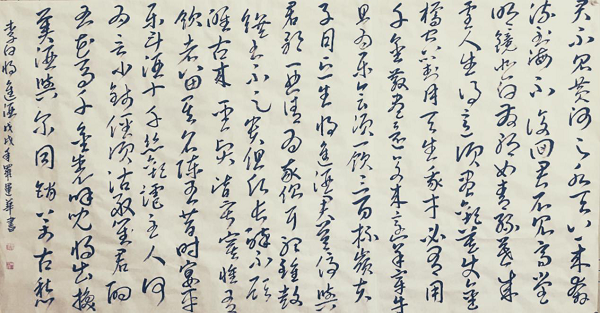 君不見黃河之水天上來奔
流到海不復回君不見高堂
明鏡悲白髮朝如青絲暮成
雪人生得意須盡歡莫使金
樽空對月天生我才必有用
千金散盡還復來烹羊宰牛
且為樂會須一飲三百杯岑夫
子丹丘生將進酒君莫停與
君歌一曲請為我傾耳聽鐘鼓
饌玉不足貴但願長醉不願
醒古來聖賢皆寂寞惟有
飲者留其名陳王昔時宴平
樂斗酒十千恣歡謔主人何
為言少錢徑須沽取對君酌
五花馬千金裘呼兒將出換
美酒與爾同銷萬古愁
李白將進酒戊戌年羅運華書